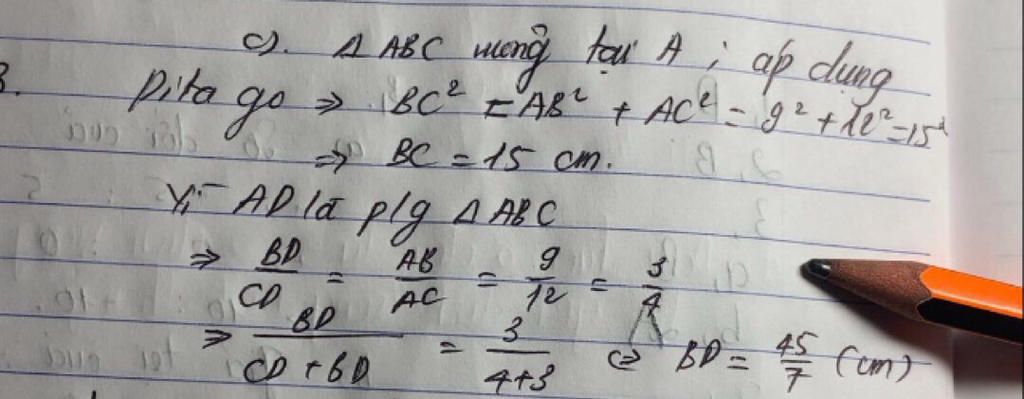 c). Δ ABC vuông tại A ; áp dụng
Pitago ⇒ BC² = AB² + AC² = 9² + 12² = 15²
⇒ BC = 15 cm.
Vì AD là p/g Δ ABC
⇒ BD/CD = AB/AC = 9/12 = 3/4
⇒ BD/(CD + BD) = 3/(4+3) ⇔ BD = 45/7 (cm)